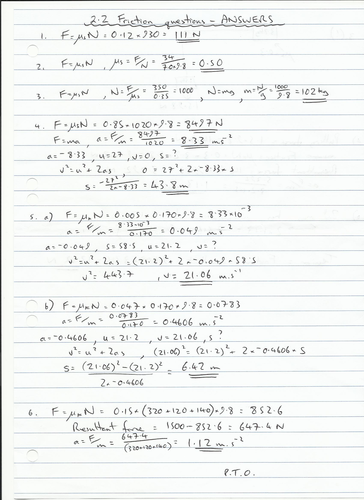 2.2 Friction questions - ANSWERS
1. F=μₛN = 0.12 × 930 = 111 N
2. F=μₛN , μₛ = F/N = 34/70×9.8 = 0.50
3. F=μₛN , N = F/μₛ = 350/0.35 = 1000 , N=mg, m = N/g = 1000/9.8 = 102 kg
4. F=μₖN = 0.85 × 1020 × 9.8 = 8497 N
F=ma, a = F/m = 8497/1020 = 8.33 ms⁻²
a = -8.33, u = 27, v = 0, s = ?
v² = u² + 2as , 0 = 27² + 2 × -8.33 × s
s = -27²/2×-8.33 = 43.8 m
5. a) F=μₖN = 0.005 × 0.170 × 9.8 = 8.33×10⁻³
a = F/m = 8.33×10⁻³/0.170 = 0.049 m.s⁻²
a = -0.049, s = 58.5, u = 21.2, v = ?
v² = u² + 2as = (21.2)² + 2 × -0.049 × 58.5
v² = 443.7 , v = 21.06 m.s⁻¹
b) F=μₖN = 0.047 × 0.170 × 9.8 = 0.0783
a = F/m = 0.0783/0.170 = 0.4606 m.s⁻²
a = -0.4606, u = 21.2, v = 21.06, s ?
v² = u² + 2as , (21.06)² = (21.2)² + 2 × -0.4606 × s
s = (21.06)² - (21.2)²/2 × -0.4606 = 6.42 m
6. F=μₖN = 0.15 × (320+120+140) × 9.8 = 852.6
Resultant force = 1500 - 852.6 = 647.4 N
a = F/m = 647.4/(320+120+140) = 1.12 m.s⁻²
P.T.O.